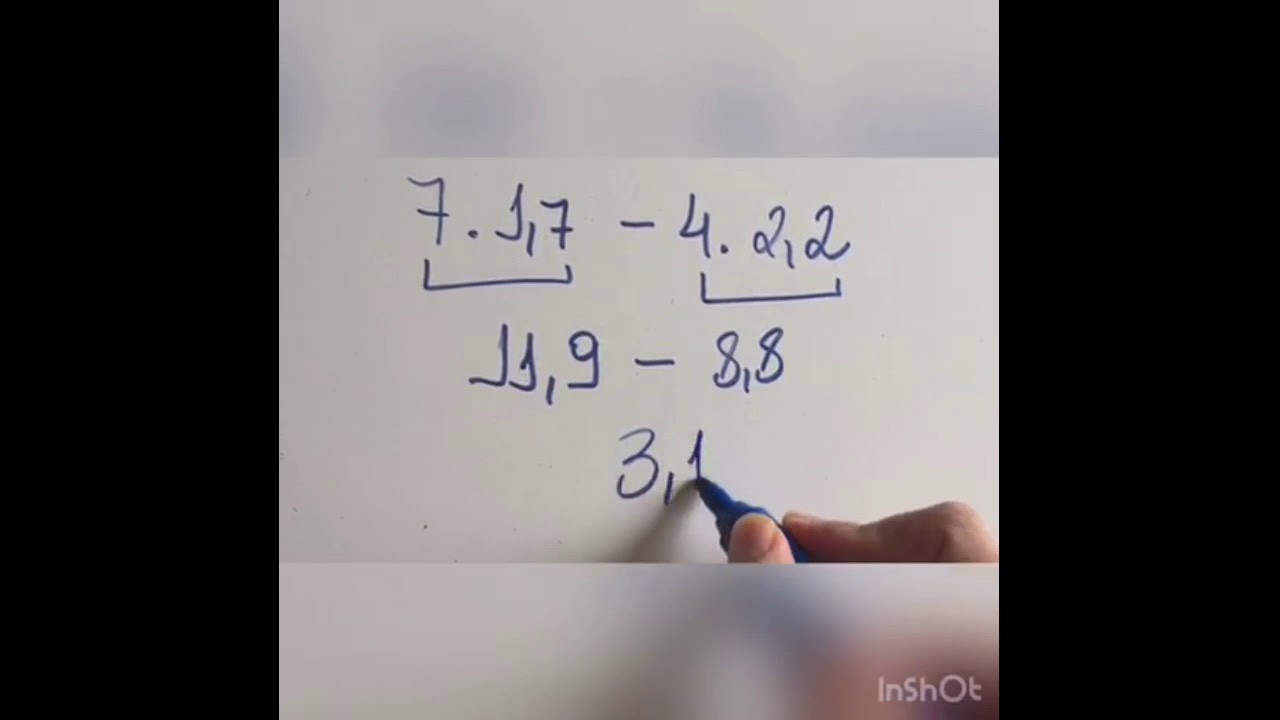 7 . 1,7 - 4 . 2,2
11,9 - 8,8
3,1
InShOt